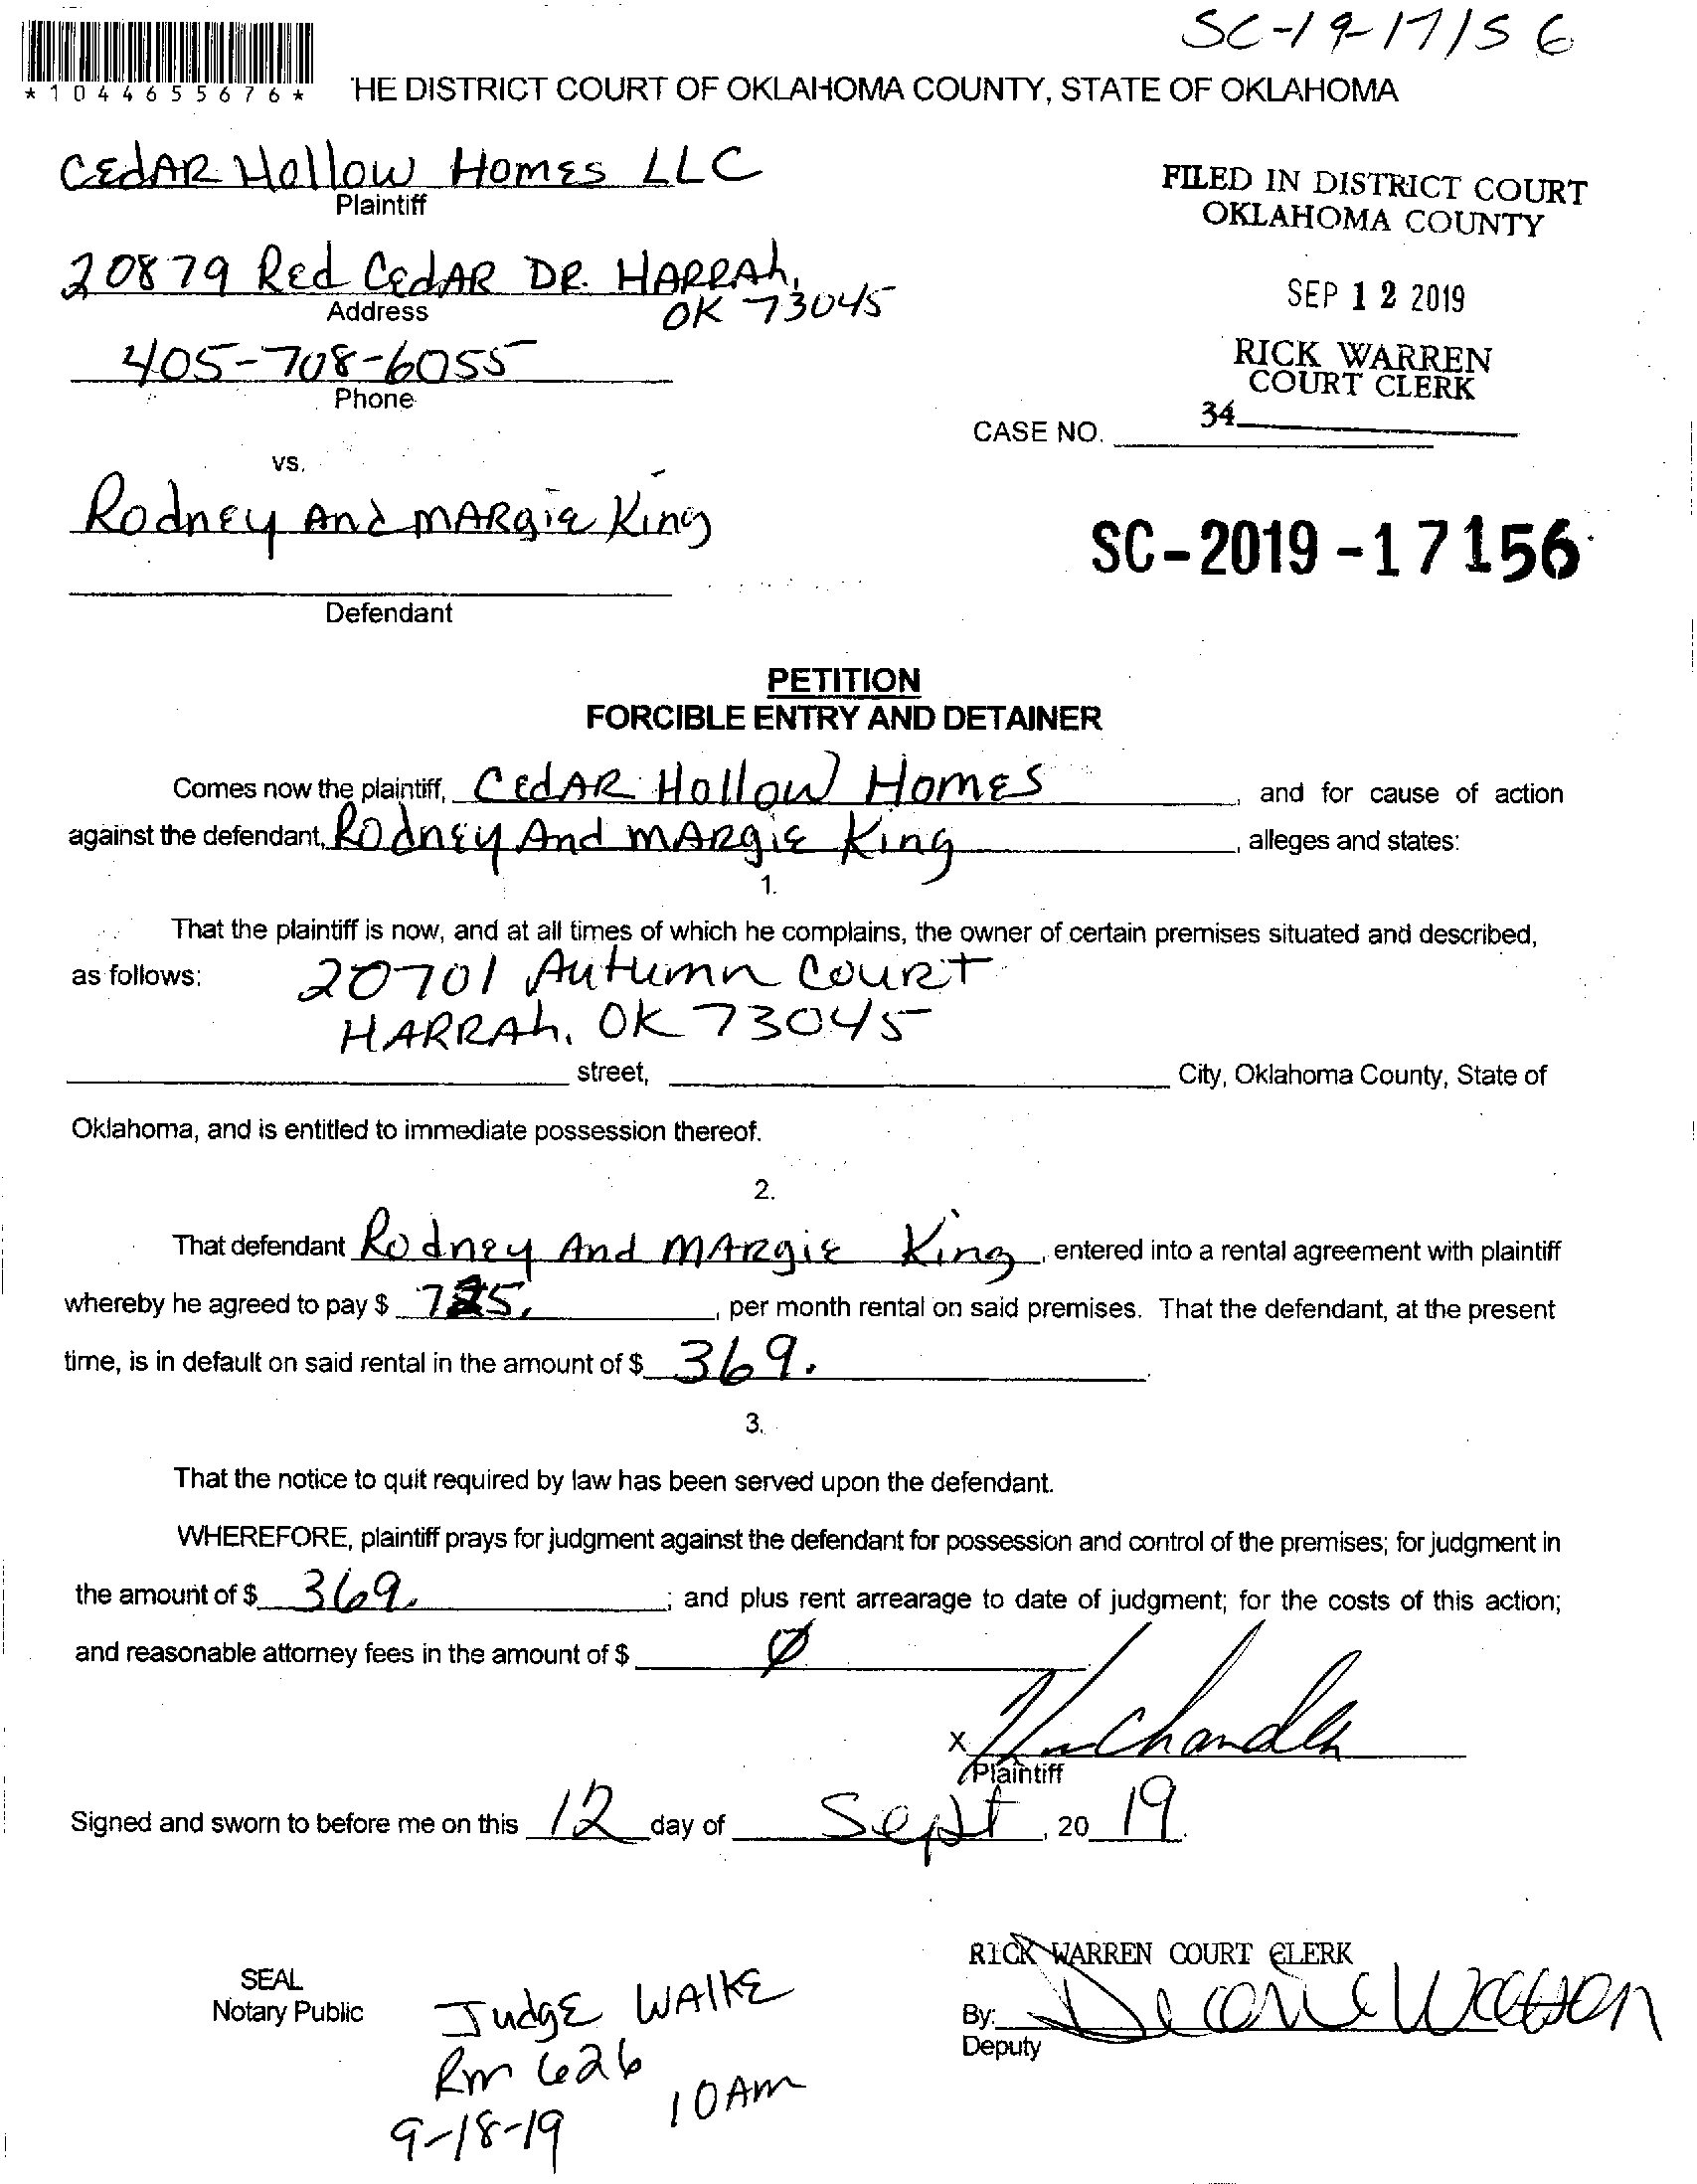 SC-19-17156
*1044655676*
'HE DISTRICT COURT OF OKLAHOMA COUNTY, STATE OF OKLAHOMA
CEdAR Hollow Homes LLC
Plaintiff
FILED IN DISTRICT COURT
OKLAHOMA COUNTY
20879 Red CedAR DR. HARRAh,
OK 73045
Address
SEP 12 2019
405-708-6055
Phone
RICK WARREN
COURT CLERK
34
CASE NO.
vs.
Rodney And MARgie King
SC-2019-17156
Defendant
PETITION
FORCIBLE ENTRY AND DETAINER
Comes now the plaintiff, CedAR Hollow Homes, and for cause of action
against the defendant, Rodney And MARgie King, alleges and states:
1.
That the plaintiff is now, and at all times of which he complains, the owner of certain premises situated and described,
as follows: 20701 Autumn Court
HARRAh, OK 73045
street, City, Oklahoma County, State of
Oklahoma, and is entitled to immediate possession thereof.
2.
That defendant Rodney And MARgie King, entered into a rental agreement with plaintiff
whereby he agreed to pay $ , per month rental on said premises. That the defendant, at the present
time, is in default on said rental in the amount of $ 369.
3.
That the notice to quit required by law has been served upon the defendant.
WHEREFORE, plaintiff prays for judgment against the defendant for possession and control of the premises; for judgment in
the amount of $ 369. ; and plus rent arrearage to date of judgment; for the costs of this action;
and reasonable attorney fees in the amount of $ Ø
X Chandler
Plaintiff
Signed and sworn to before me on this 12 day of Sept, 20 19.
RICK WARREN COURT CLERK
SEAL
Notary Public
Judge WAlKE
By: Watson
Deputy
Rm 626
10 AM
9-18-19